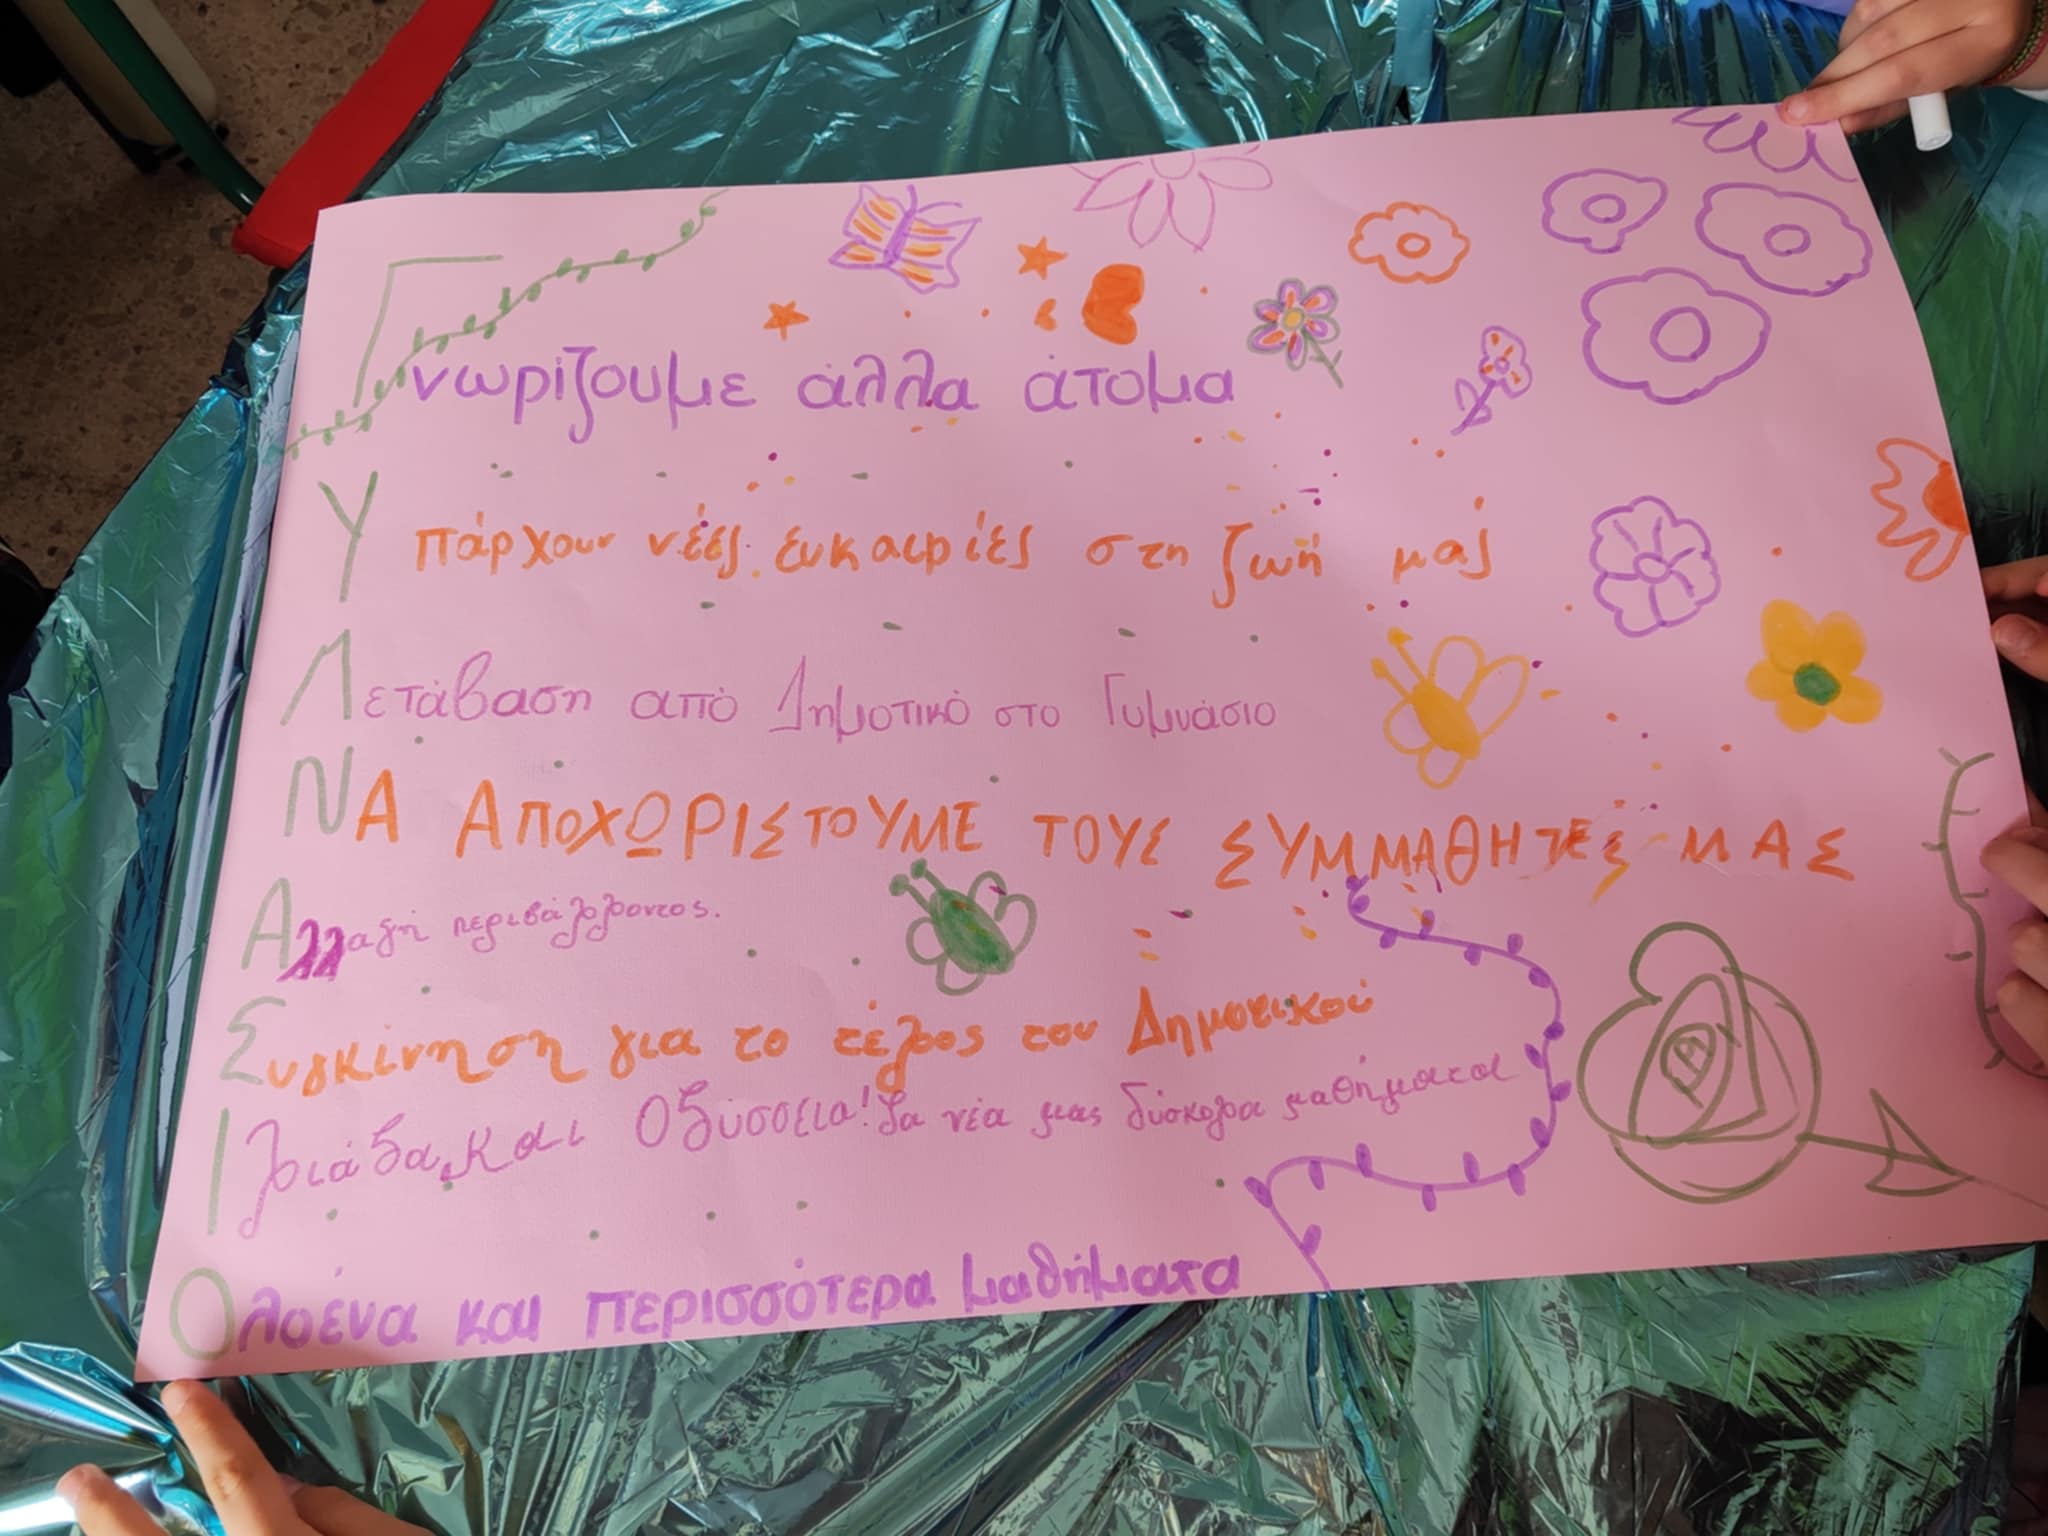 Γνωρίζουμε άλλα άτομα
Υπάρχουν νέες ευκαιρίες στη ζωή μας
Μετάβαση από Δημοτικό στο Γυμνάσιο
ΝΑ ΑΠΟΧΩΡΙΣΤΟΥΜΕ ΤΟΥΣ ΣΥΜΜΑΘΗΤΕΣ ΜΑΣ
Αλλαγή περιβάλλοντος.
Συγκίνηση για το τέλος του Δημοτικού
Ιλιάδα και Οδύσσεια! Τα νέα μας δύσκολα μαθήματα
Ολοένα και περισσότερα μαθήματα